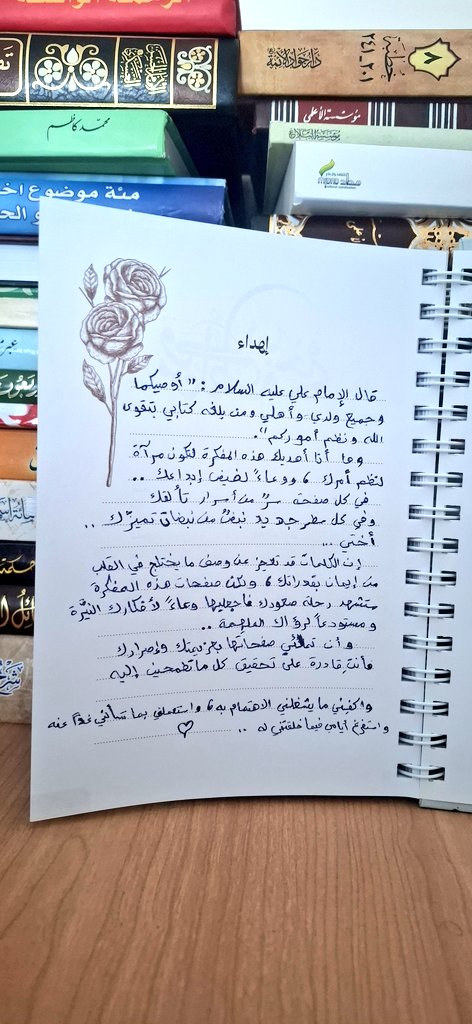 محمد كاظم
مئة موضوع
٧
خطبة
٢٠١-٢٤١
مؤسسة الأعلمي
إهداء
قال الإمام علي عليه السلام : " أوصيكما
وجميع ولدي وأهلي ومن بلغه كتابي بتقوى
الله ونظم أموركم".
وها أنا أهديك هذه المفكرة لتكون مرآة
لنظم أمرك ، ووعاءً لضيف إبداعك ..
في كل صفحة سرٌ من أسرار تألقك
وفي كل سطر جديد نبضٌ من نبضات تميزك ..
أختي ...
إن الكلمات قد تعجز عن وصف ما يختلج في القلب
من إيمان بقدراتك ، ولكن صفحات هذه المفكرة
ستشهد رحلة صعودك فاجعليها وعاءً لأفكارك النيَّرة
ومستودعاً لرؤاك الملهمة ..
وأن تملئي صفحاتها بعزيمتك وإصرارك
فأنتِ قادرة على تحقيق كل ما تطمحين إليه
واكفني ما يشغلني الاهتمام به ، واستعملني بما تسألني غداً عنه
واستفرغ أيامي فيما خلقتني له ..